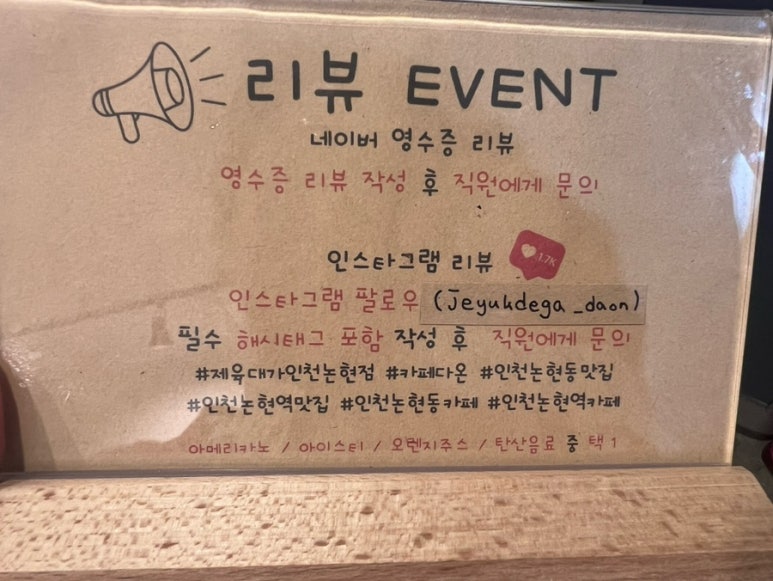 리뷰 EVENT
네이버 영수증 리뷰
영수증 리뷰 작성 후 직원에게 문의
인스타그램 리뷰 1.7K
인스타그램 팔로우 (jeyukdega_daon)
필수 해시태그 포함 작성 후 직원에게 문의
#제육대가인천논현점 #카페다온 #인천논현동맛집
#인천논현역맛집 #인천논현동카페 #인천논현역카페
아메리카노 / 아이스티 / 오렌지주스 / 탄산음료 중 택 1